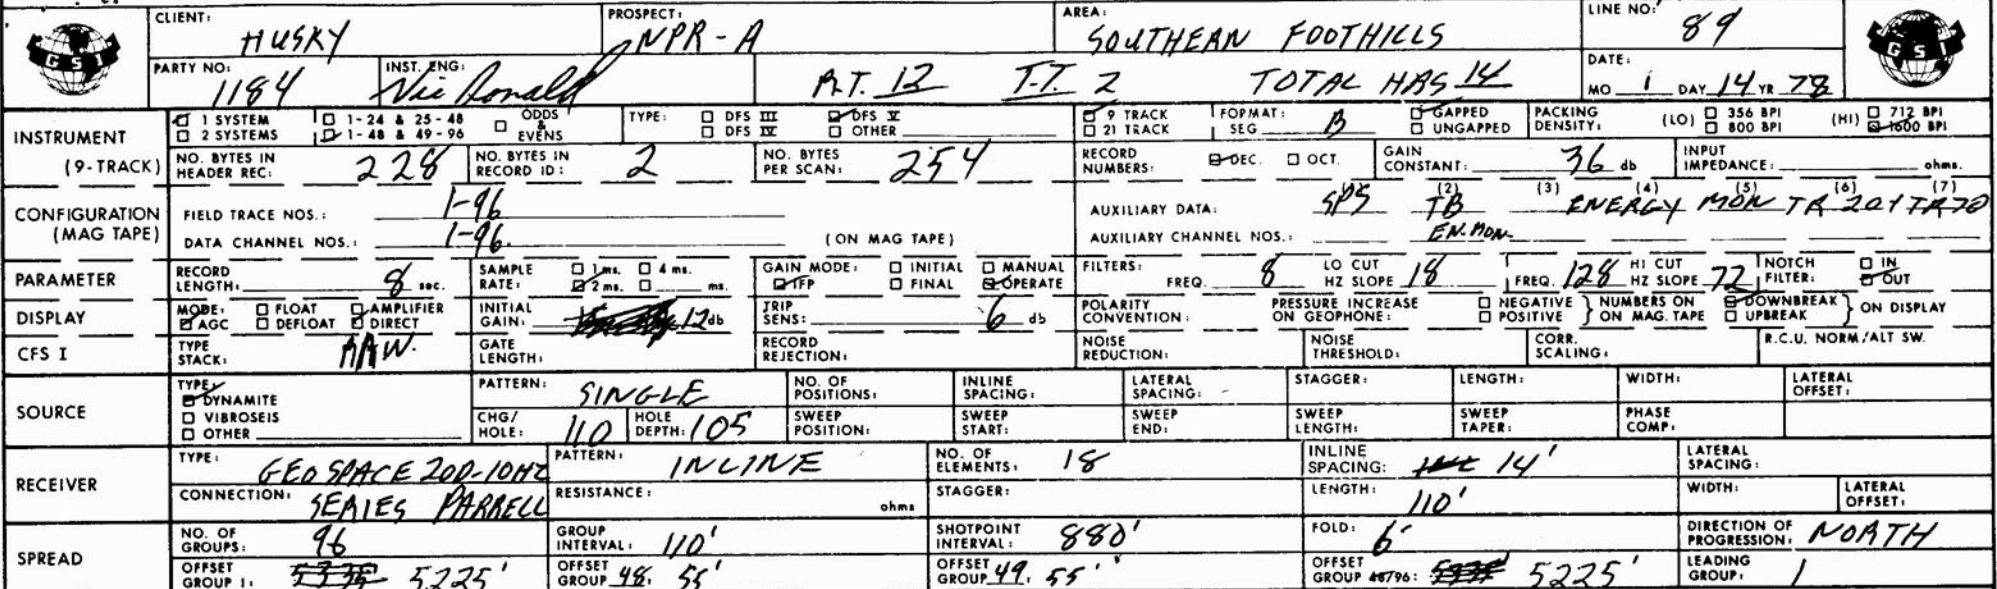 CLIENT: HUSKY PROSPECT: NPR-A AREA: SOUTHERN FOOTHILLS LINE NO: 89
GSI GSI
PARTY NO: 1184 INST. ENG: Vic Ronald R.T. 12 T.T. 2 TOTAL HRS 14 DATE: MO 1 DAY 14 YR 78
INSTRUMENT (9-TRACK)
1 SYSTEM 1-24 & 25-48 ODDS & EVENS TYPE: DFS III DFS V 9 TRACK FORMAT: GAPPED PACKING DENSITY: (LO) 356 BPI (HI) 712 BPI
2 SYSTEMS 1-48 & 49-96 DFS IV OTHER 21 TRACK SEG B UNGAPPED 800 BPI 1600 BPI
NO. BYTES IN HEADER REC: 228 NO. BYTES IN RECORD ID: 2 NO. BYTES PER SCAN: 254 RECORD NUMBERS: DEC. OCT. GAIN CONSTANT: 36 db INPUT IMPEDANCE: ohms.
CONFIGURATION (MAG TAPE)
(2) (3) (4) (5) (6) (7)
FIELD TRACE NOS.: 1-96 AUXILIARY DATA: SPS TB ENERGY MON TR 201 TR70
DATA CHANNEL NOS.: 1-96. (ON MAG TAPE) AUXILIARY CHANNEL NOS.: EN.MON.
PARAMETER RECORD LENGTH: 8 sec. SAMPLE RATE: 1 ms. 4 ms. 2 ms. ms. GAIN MODE: INITIAL MANUAL IFP FINAL OPERATE FILTERS: FREQ. 8 LO CUT HZ SLOPE 18 FREQ. 128 HI CUT HZ SLOPE 72 NOTCH FILTER: IN OUT
DISPLAY MODE: FLOAT AMPLIFIER AGC DEFLOAT DIRECT INITIAL GAIN: 12 db TRIP SENS: 6 db POLARITY CONVENTION: PRESSURE INCREASE ON GEOPHONE: NEGATIVE POSITIVE NUMBERS ON ON MAG. TAPE DOWNBREAK UPBREAK ON DISPLAY
CFS I TYPE STACK: RAW. GATE LENGTH: RECORD REJECTION: NOISE REDUCTION: NOISE THRESHOLD: CORR. SCALING: R.C.U. NORM/ALT SW.
SOURCE TYPE: DYNAMITE VIBROSEIS OTHER
PATTERN: SINGLE NO. OF POSITIONS: INLINE SPACING: LATERAL SPACING: STAGGER: LENGTH: WIDTH: LATERAL OFFSET:
CHG/HOLE: 110 HOLE DEPTH: 105 SWEEP POSITION: SWEEP START: SWEEP END: SWEEP LENGTH: SWEEP TAPER: PHASE COMP:
RECEIVER TYPE: GEO SPACE 20D-10HZ PATTERN: INLINE NO. OF ELEMENTS: 18 INLINE SPACING: 14' LATERAL SPACING:
CONNECTION: SERIES PARRELL RESISTANCE: ohms STAGGER: LENGTH: 110' WIDTH: LATERAL OFFSET:
SPREAD NO. OF GROUPS: 96 GROUP INTERVAL: 110' SHOTPOINT INTERVAL: 880' FOLD: 6 DIRECTION OF PROGRESSION: NORTH
OFFSET GROUP 1: 5225' OFFSET GROUP 48: 55' OFFSET GROUP 49: 55' OFFSET GROUP 48/96: 5225' LEADING GROUP: 1